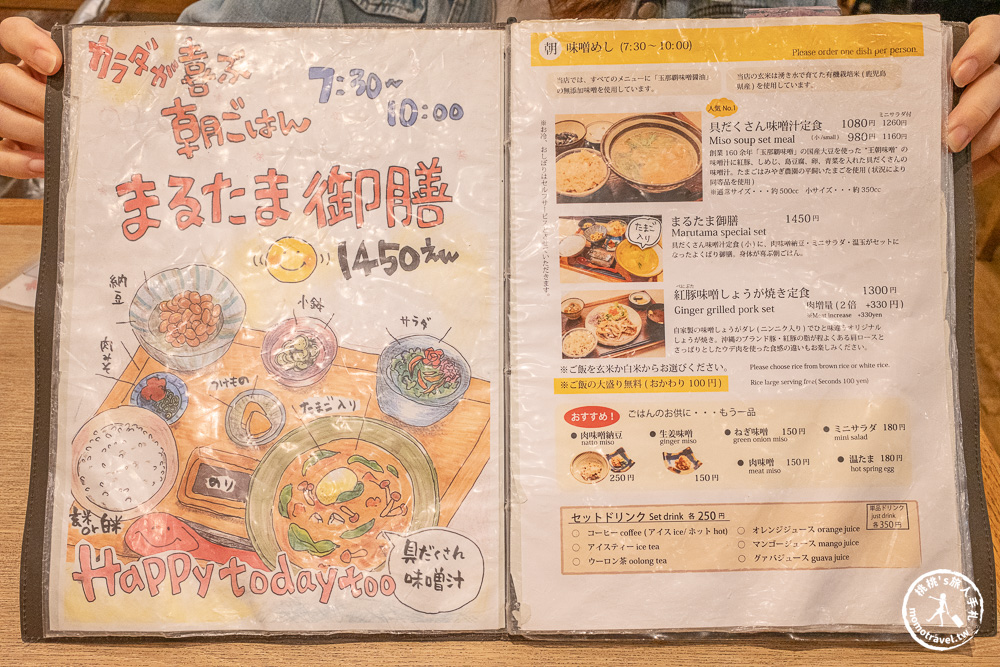 カラダが喜ぶ
朝ごはん
7:30~
10:00
まるたま御膳
1450えん
納豆
肉みそ
小鉢
サラダ
つけもの
たまご入り
のり
玄米or白米
具だくさん
味噌汁
Happy today too
朝 味噌めし (7:30～10:00)
Please order one dish per person.
当店では、すべてのメニューに「玉那覇味噌醤油」
の無添加味噌を使用しています。
当店の玄米は湧き水で育てた有機栽培米(鹿児島
県産)を使用しています。
※お冷、おしぼりはセルフサービスとさせていただきます。
人気 No.1
ミニサラダ付
具だくさん味噌汁定食 1080円 1260円
Miso soup set meal (小/small) 980円 1160円
創業160余年「玉那覇味噌」の国産大豆を使った"王朝味噌"の
味噌汁に紅豚、しめじ、島豆腐、卵、青菜を入れた具だくさんの
味噌汁。たまごはみやぎ農園の平飼いたまごを使用(状況により
同等品を使用)
※通常サイズ・・・約500cc 小サイズ・・・約350cc
たまご
入り
まるたま御膳 1450円
Marutama special set
具だくさん味噌汁定食(小)に、肉味噌納豆・ミニサラダ・温玉がセットに
なったよくばり御膳。身体が喜ぶ朝ごはん。
べにぶた
紅豚味噌しょうが焼き定食 1300円
Ginger grilled pork set 肉増量(2倍 +330円)
※Meat increase +330yen
自家製の味噌しょうがダレ(ニンニク入り)でひと味違うオリジナル
しょうが焼き。沖縄のブランド豚・紅豚の脂が程よくある肩ロースと
さっぱりとしたウデ肉を使った食感の違いもお楽しみください。
※ご飯を玄米か白米からお選びください。 Please choose rice from brown rice or white rice.
※ご飯の大盛り無料(おかわり100円) Rice large serving free( Seconds 100 yen)
おすすめ！ ごはんのお供に・・・もう一品
● 肉味噌納豆
natto miso
250円
● 生姜味噌
ginger miso
150円
● ねぎ味噌 150円
green onion miso
● ミニサラダ 180円
mini salad
● 肉味噌 150円
meat miso
● 温たま 180円
hot spring egg
セットドリンク Set drink 各250円
単品ドリンク
just drink
各350円
○ コーヒー coffee (アイス ice/ ホット hot)
○ アイスティー ice tea
○ ウーロン茶 oolong tea
○ オレンジジュース orange juice
○ マンゴージュース mango juice
○ グァバジュース guava juice
桃桃's旅人手札
momotravel.tw